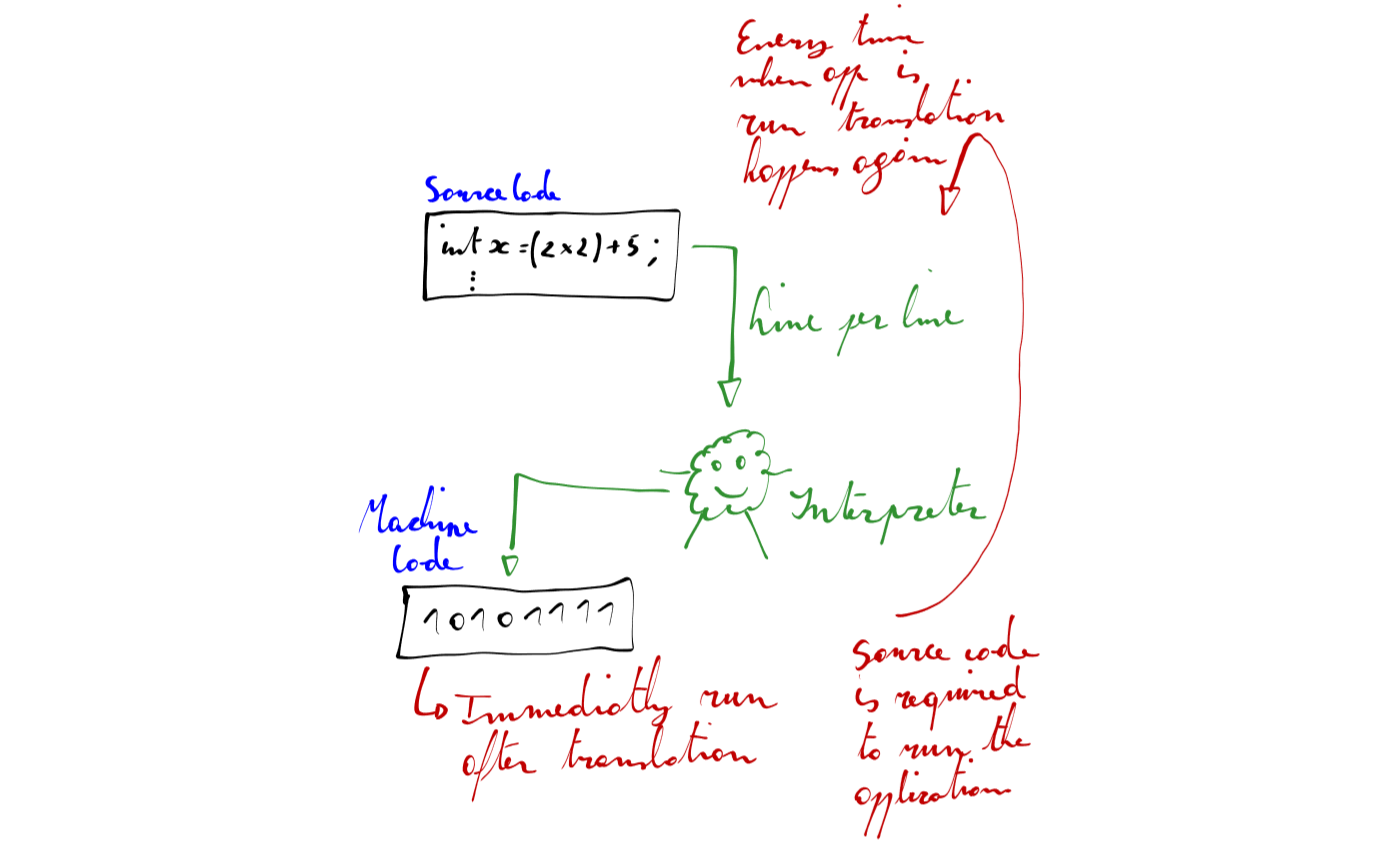 Every time
when app is
run translation
happens again
Source Code
int x = (2x2) + 5 ;
⋮
Line per line
Interpreter
Machine
Code
10101111
↳ Immediatly run
after translation
Source code
is required
to run the
application